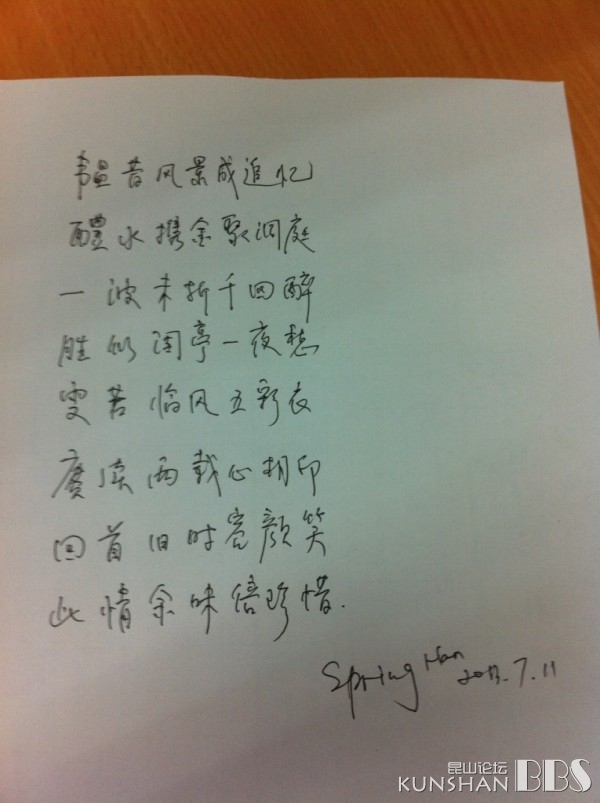 韫昔风景成追忆
醴水携金聚洞庭
一波未折千回醉
胜似亭一夜愁
雯若临风五彩衣
赓续两载心相印
回首旧时容颜笑
此情余味倍珍惜.
Spring Han 2013.7.11
昆山论坛
KUNSHAN BBS